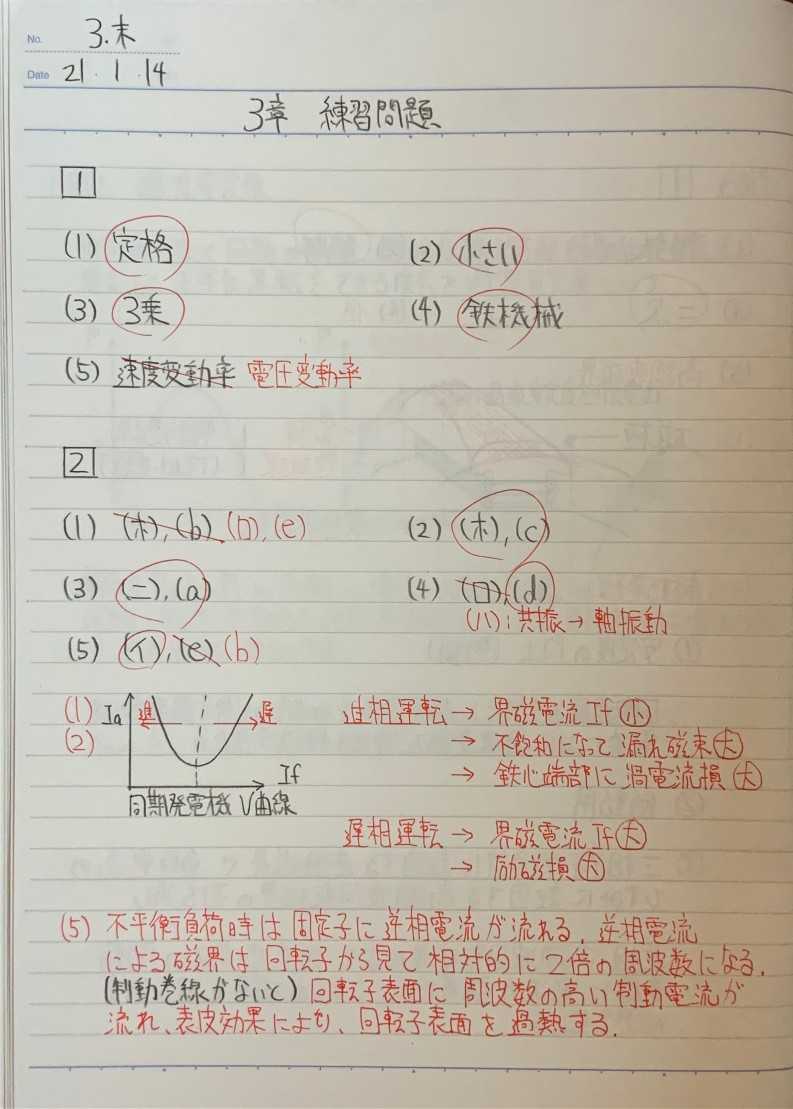 No. 3.末
Date 21・1・14
3章 練習問題
1
(1) 定格 (2) 小さい
(3) 3乗 (4) 鉄機械
(5) 速度変動率 電圧変動率
2
(1) (ホ),(b) (ロ),(e) (2) (ホ),(c)
(3) (ニ),(a) (4) (ロ),(d)
(ハ):共振→軸振動
(5) (イ),(e) (b)
(1) Ia 進 遅 進相運転 → 界磁電流 If 小
(2) → 不飽和になって漏れ磁束 大
If → 鉄心端部に渦電流損 大
同期発電機 V曲線
遅相運転 → 界磁電流 If 大
→ 励磁損 大
(5) 不平衡負荷時は固定子に逆相電流が流れる. 逆相電流
による磁界は回転子から見て相対的に2倍の周波数になる.
(制動巻線がないと) 回転子表面に周波数の高い制動電流が
流れ、表皮効果により、回転子表面を過熱する.